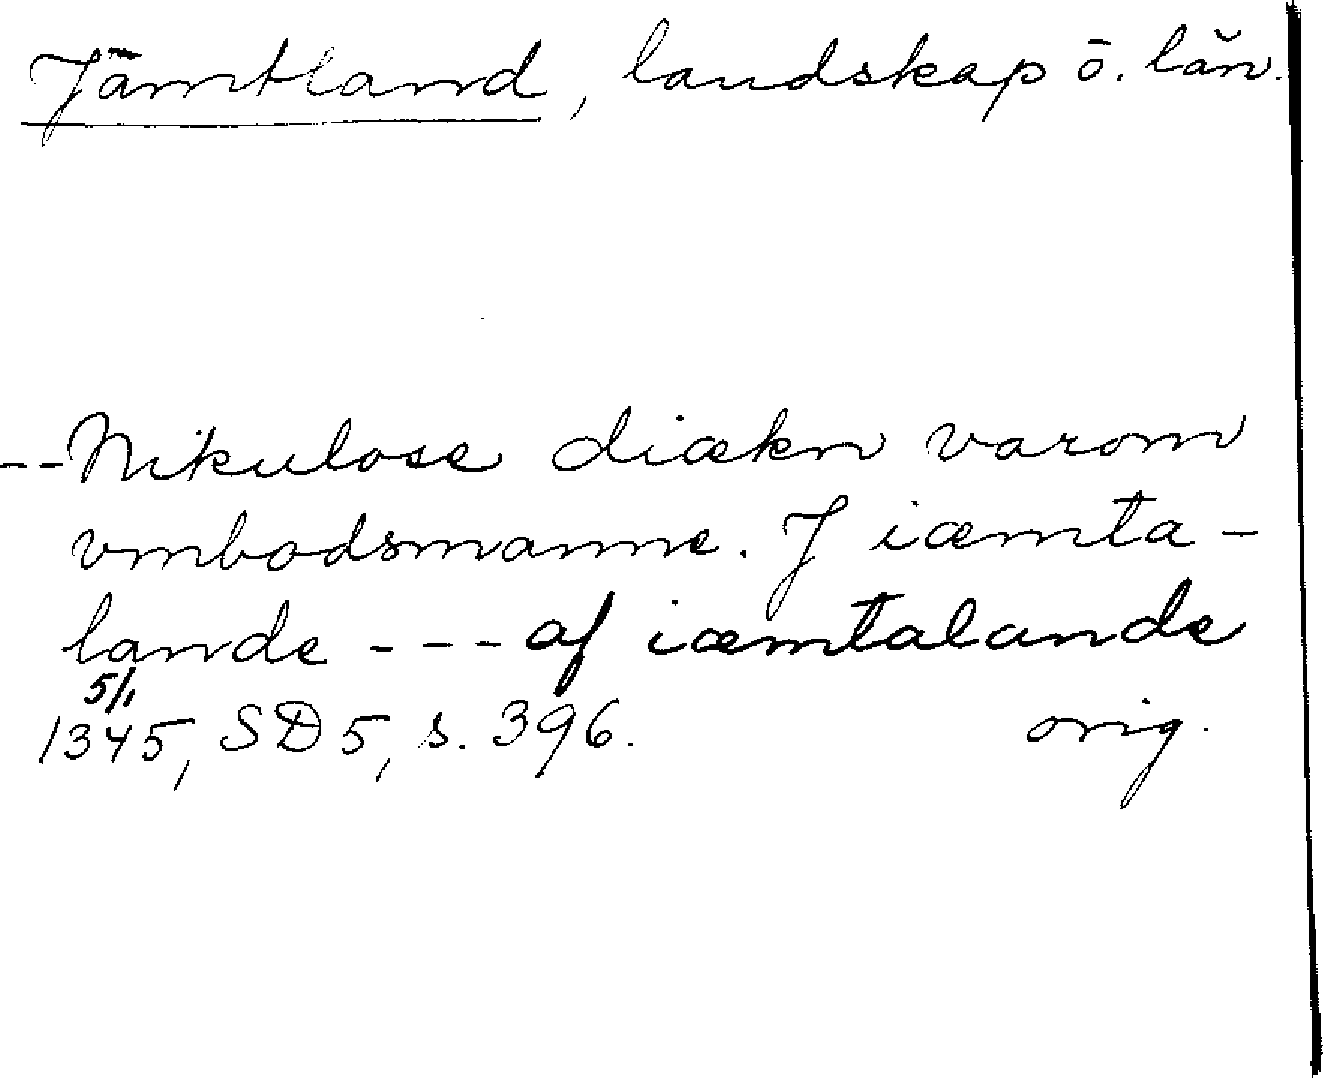 Jämtland, landskap ö. län.
--Nikulose diækn varom
vmbodsmanne. J iæmta-
lande --- af iæmtalande
5/1
1345, SD 5, s. 396. orig.